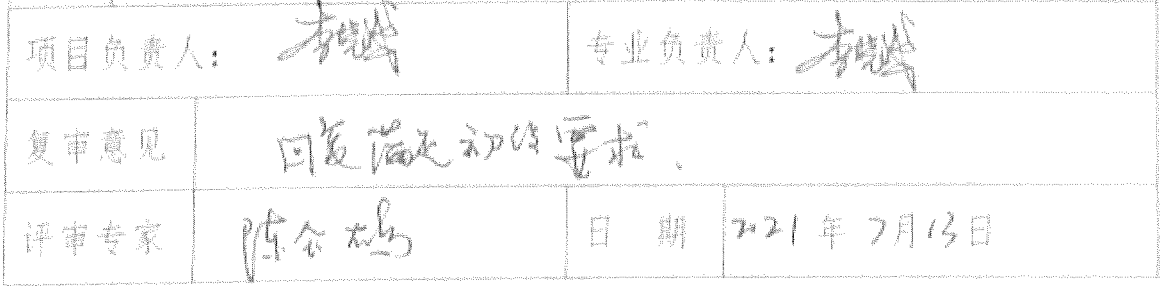 项目负责人: 李晓斌 专业负责人: 李晓斌
复审意见 回复满足初评要求.
评审专家 陈 日 期 2021年7月13日